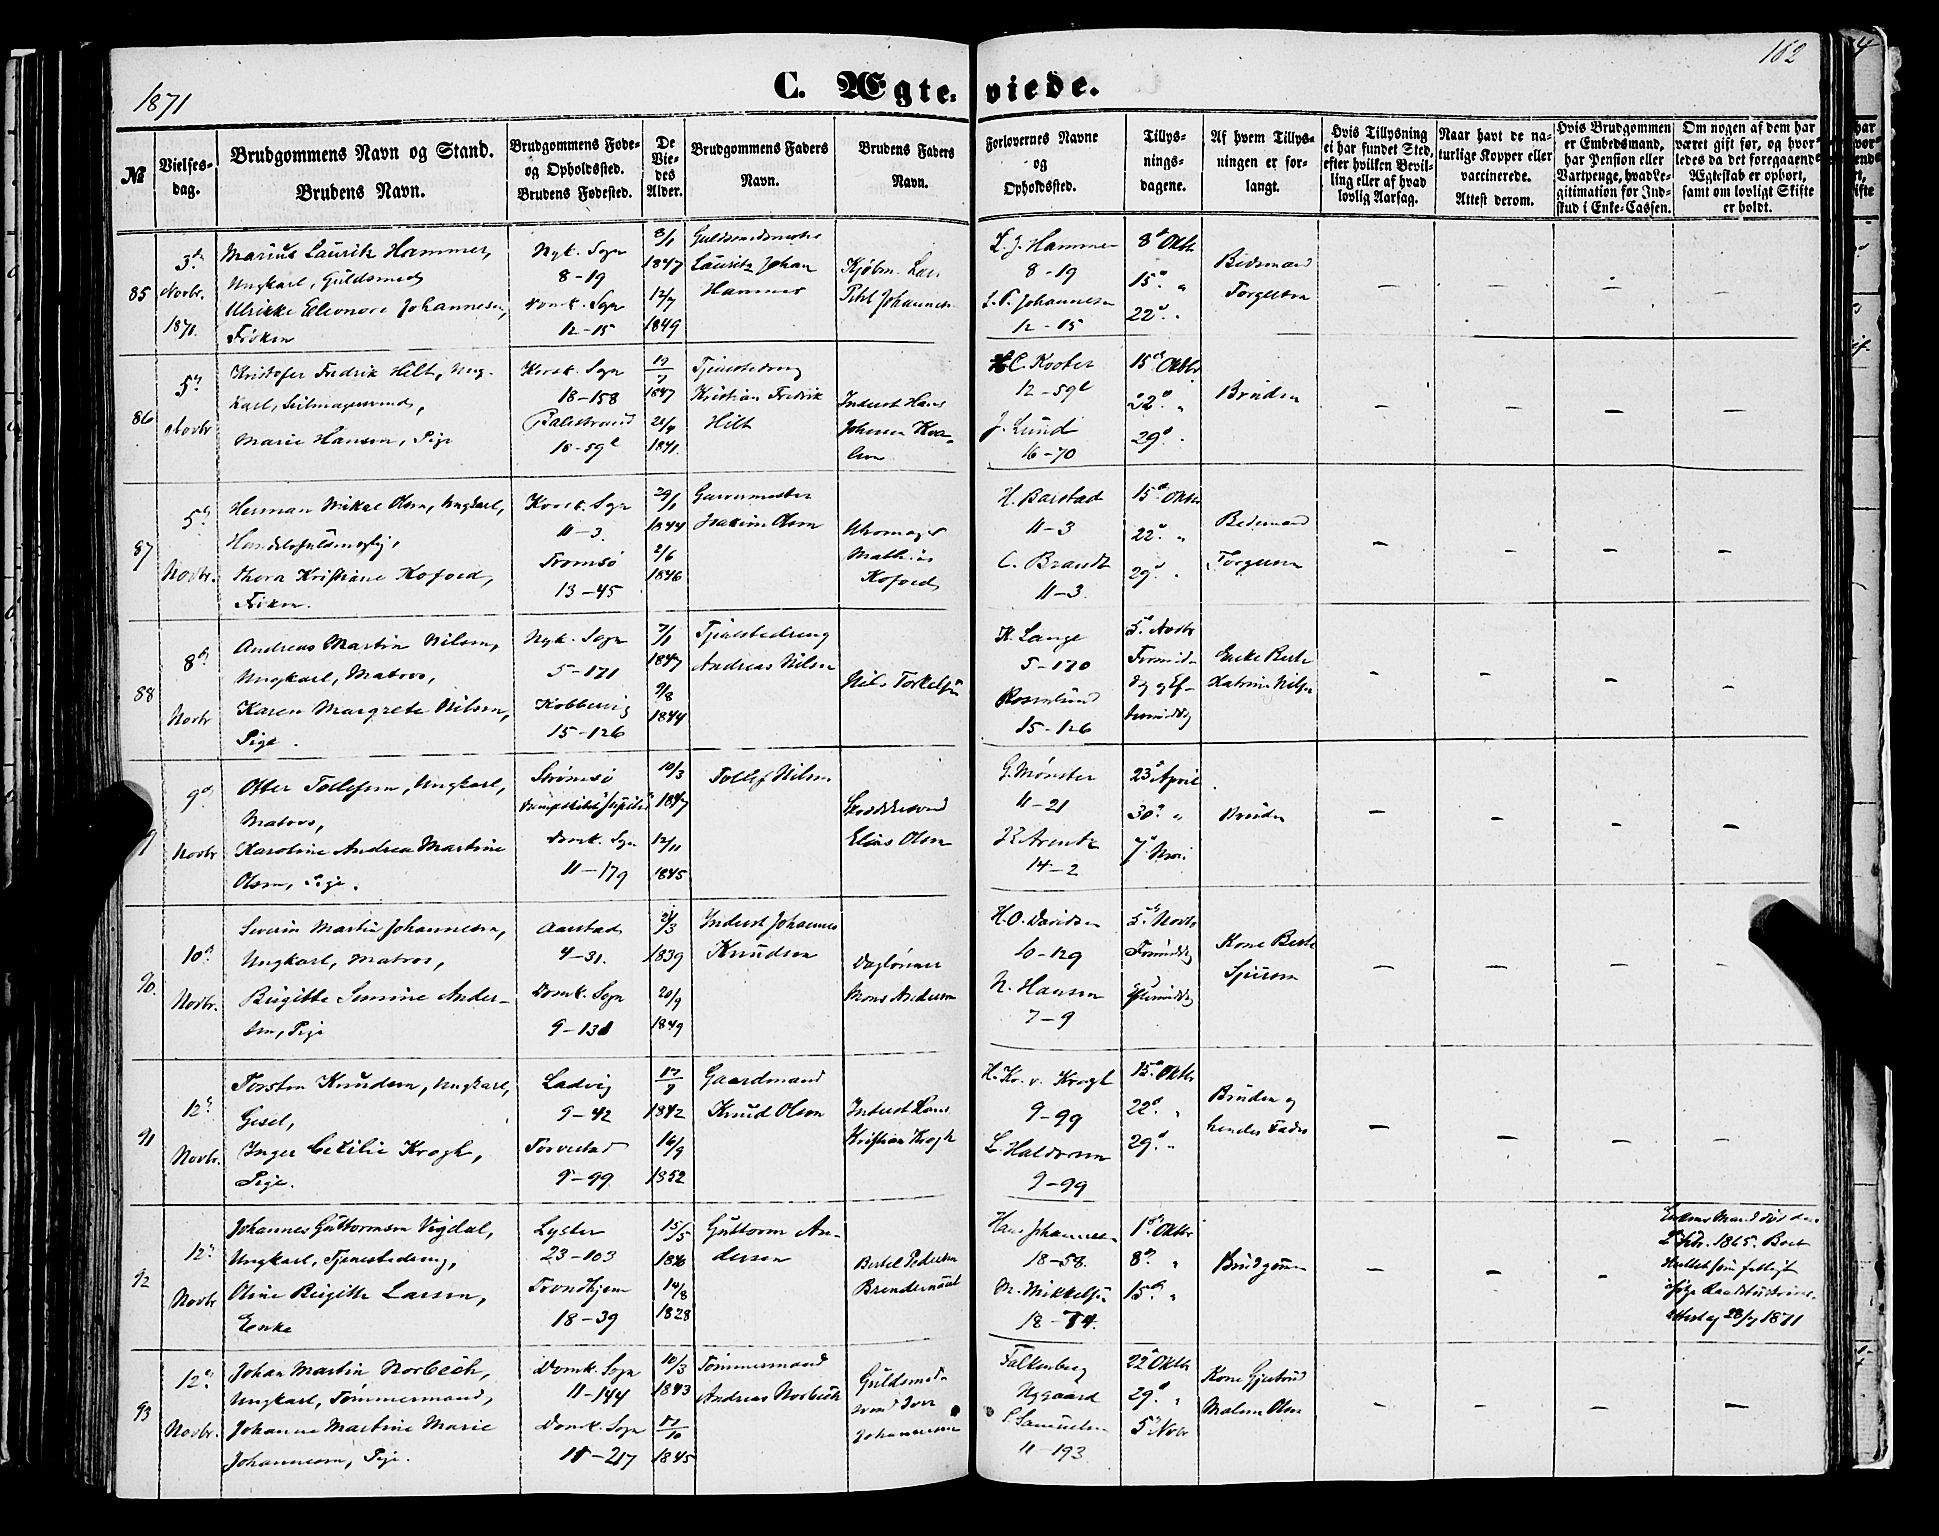 1871
C. Ægte-
viede.
162
№
Vielses-
dag.
Brudgommens Navn og Stand.
Brudens Navn.
Brudgommens Føde-
og Opholdssted.
Brudens Fødested.
De
Vie-
des
Alder.
Brudgommens Faders
Navn.
Brudens Faders
Navn.
Forlovernes Navne
og
Opholdssted.
Tillys-
nings-
dagene.
Af hvem Tillys-
ningen er for-
langt.
Hvis Tillysning
ei har fundet Sted,
efter hvilken Bevil-
ling eller af hvad
lovlig Aarsag.
Naar havt de na-
turlige Kopper eller
vaccinerede.
Attest derom.
Hvis Brudgommen
er Embedsmand,
har Pension eller
Vartpenge, hvad Le-
gitimation for Ind-
skud i Enke-Cassen.
Om nogen af dem har
været gift før, og hvor
ledes da det foregaaende
Ægteskab er ophørt,
samt om lovligt Skifte
er holdt.
85
3d
Novbr.
1871.
Marius Lauritz Hammer,
Ungkarl, Guldsmed
Ulrikke Eleonore Johannesen,
Frøken
Nyk. Sogn
8-19
Domk. Sogn
12-15
8/1
1847
12/7
1849
Guldsmedmester
Lauritz Johan
Hammer
Kjøbm. Lars
Petel Johannesen
L. J. Hammer
8-19
L. P. Johannesen
12-15
8d Oktbr
15d "
22d "
Bedemand
Torgersen
86
5d
Novbr
Kristofer Fredrik Hilt, Ung-
karl, Seilmagersvend,
Marie Hansen, Pige
Korsk. Sogn
18-158
Balestrand
16-59
1847
1841.
Tjenestedreng
Kristian Fredrik
Hilt
Inderst Hans
Johnsen
12-59
J. Lund
16-70
15d Oktbr
22d "
29d "
Bruden
87
5d
Novbr.
Herman Mikal Olsen, Ungkarl,
Handelsfuldmægtig,
Thora Kristiane Kofoed,
Frøken.
Korsk. Sogn
11-3.
Tromsø
13-45
29/1
1844
2/6
1846
Garvermester
Joakim Olsen
Uhrmager
Mathias
Kofoed
H. Barstad
11-3
C. Brandt
11-3.
15d Oktbr
22d "
29d "
Bedemand
Torgersen
88
8d
Novbr
Andreas Martin Nilsen,
Ungkarl, Matros,
Karen Margrete Nilsen,
Pige.
Nyk. Sogn
5-171
Kobbervig
15-126
7/1
1847
9/8
1844
Tjenestedreng
Andreas Nilsen
Nils Torkelsen
K. Lange
5-170
Rosenlund
15-126
5d Novbr
Formid-
dag og Ef-
termiddag
Enke Berte
Katrine Nilsen
9d
Novbr
Otter Tollefsen, Ungkarl,
Matros,
Karoline Andrea Martine
Olsen, Pige.
Strømsø
Dampskibet "Jupiter"
Domk. Sogn
11-179
10/3
1847
12/11
1845
Tollef Nilsen
Elias Olsen
G. Mønster
11-21
Arentz
14-2
23d April
30d "
7d Mai
Bruden
90.
10d
Novbr.
Severin Martin Johannesen,
Ungkarl, Matros,
Birgitte Simine Ander-
sen, Pige
Aarstad
4-31.
Domk. Sogn
9-131
1839
20/9
1849
Inderst Johannes
Knudsen
Daglønner
Mons Andersen
H. O. Davidsen
10-129
N. Hansen
7-9
5d Novbr
Formiddag
Eftermiddag
Kone Berte
91
12d
Novbr.
Torsten Knudsen, Ungkarl,
Gesel,
Inger Cecilie Krogh,
Pige.
Ladvig
9-42
Torvestad
9-99
17/8
1842
16/9
1852
Gaardmand
Knud Olson
Inderst Hans
Kristian Krogh
H. Kr. v. Krogh
9-99
L. Halvorsen
9-99
15d Oktbr
22d "
29d "
Bruden og
hendes Fader
92
12d
Novbr
Johannes Guttormsen Vigdal,
Ungkarl, Tjenestedreng,
Oline Birgitte Larsen,
Enke
Lyster
23-103
Trondhjem
18-39
15/5
14/8
1828
Guttorm An-
dersen
Bertel Pedersen
Hans Johannesen
18-58.
M. Mikkelsen
1d Oktbr
8d "
15d "
Brudgommen
Enkens Mand død den
1865. Boet
som fattigt
28/7 1871
93
12d
Novbr.
Johan Martin Norbech,
Ungkarl, Tømmermand,
Johanne Martine Marie
Johannesen, Pige.
Domk. Sogn
11-144
Domk. Sogn
11-217
10/3
1843
17/10
1845
Tømmermand
Andreas Norbech
Guldsmed-
svend Iver
Johannesen
Falkenberg
Nygaard
Samuelsen
11-193
22d Oktbr
29d "
5d Novbr
Kone Gjertrud
Malene Olsen